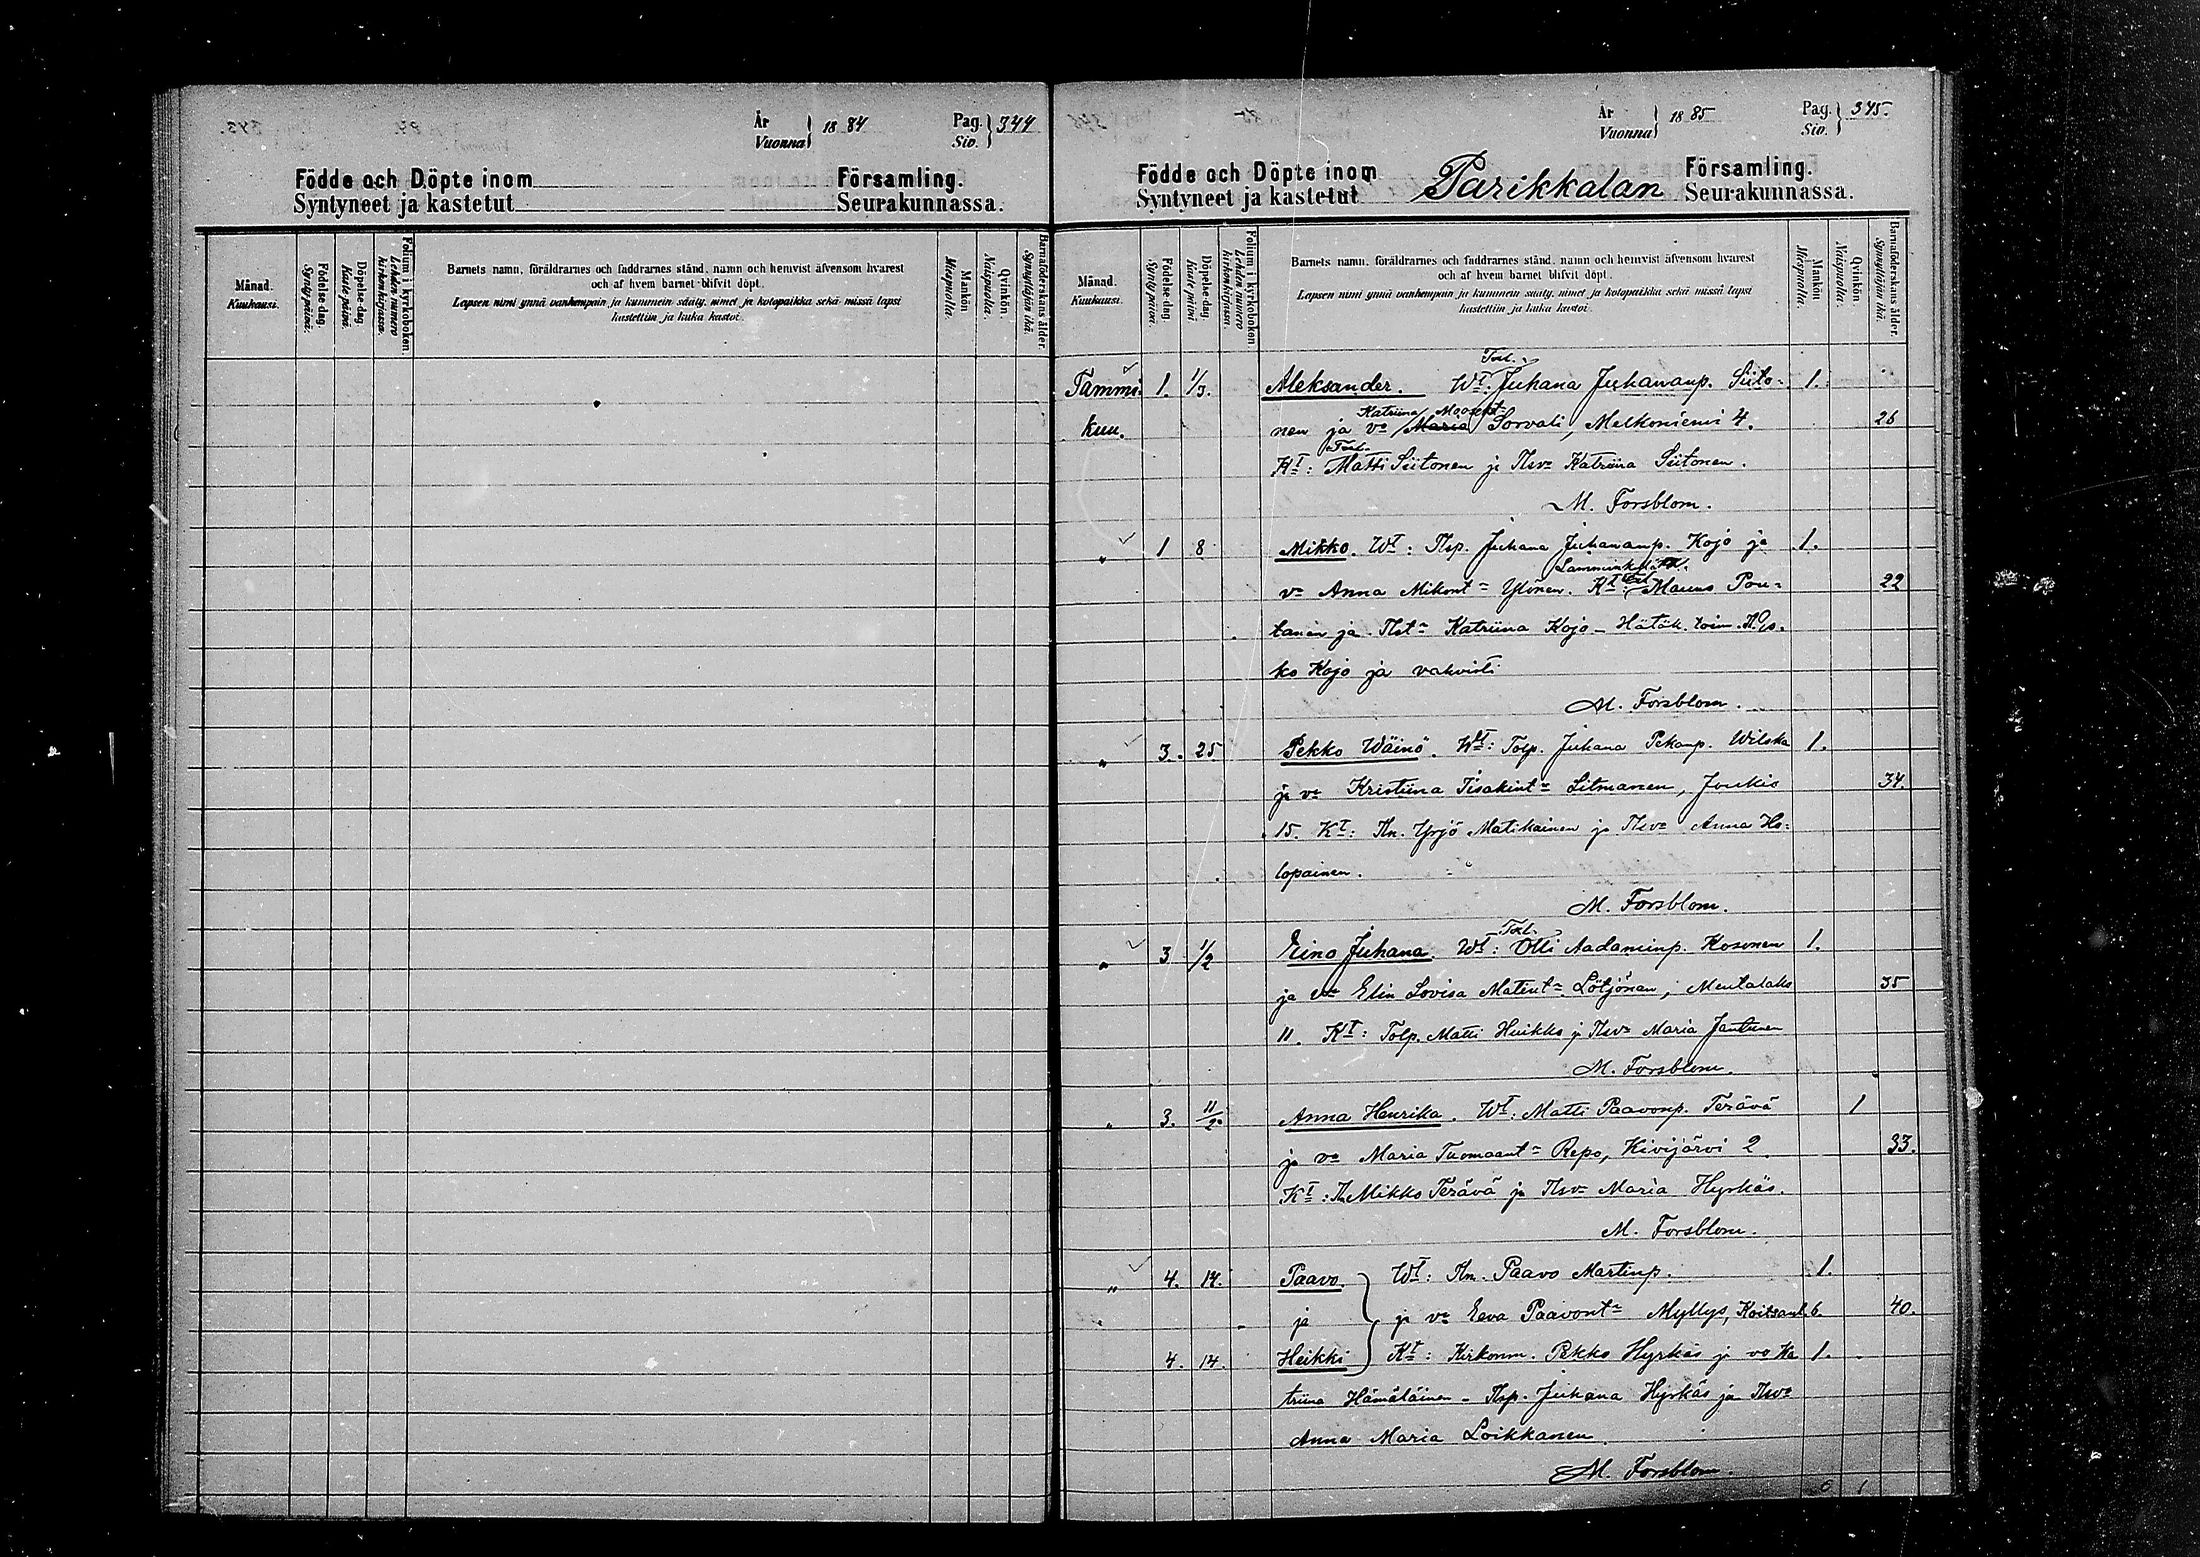 År
Vuonna
1884
Pag.
Siv.
344
Födde och Döpte inom Församling.
Syntyneet ja kastetut Seurakunnassa.
Månad.
Kuukausi.
Födelse-dag.
Synty päivä.
Döpelse-dag.
Kaste päivä.
Folium i kyrkoboken.
Lehden numero kirkonkirjassa.
Barnets namn, föräldrarnes och faddrarnes stånd, namn och hemvist äfvensom hvarest
och af hvem barnet blifvit döpt.
Lapsen nimi ynnä vanhempain ja kummein sääty, nimet ja kotopaikka sekä missä lapsi
kastettiin ja kuka kastoi.
Mankön
Miespuolta.
Qvinkön
Naispuolta.
Barnaföderskans ålder.
Synnyttäjän ikä.
År
Vuonna
1885
Pag.
Siv.
345.
Födde och Döpte inom Parikkalan Församling.
Syntyneet ja kastetut Seurakunnassa.
Månad.
Kuukausi.
Födelse-dag.
Synty päivä.
Döpelse-dag.
Kaste päivä.
Folium i kyrkoboken
Lehden numero kirkonkirjassa.
Barnets namn, föräldrarnes och faddrarnes stånd, namn och hemvist äfvensom hvarest
och af hvem barnet blifvit döpt.
Lapsen nimi ynnä vanhempain ja kummein sääty, nimet ja kotopaikka sekä missä lapsi
kastettiin ja kuka kastoi.
Mankön
Miespuolta.
Qvinkön
Naispuolta.
Barnaföderskans ålder.
Synnyttäjän ikä.
Tammi- 1. 1/3. Aleksander. Wt. Juhana Juhananp. Siito- 1.
Katriina
kuu. nen ja vo Maria Sorvali, Melkoniemi 4. 26
Kt: Matti Siitonen ja Tlsvo Katriina Siitonen.
M. Forsblom.
" 1 8 Mikko. Wt: Tlsp. Juhana Juhananp. Kojo ja 1.
vo Anna Mikont. Ylönen. Kt: Mauno Pou- 22
tanen ja Tlst. Katriina Kojo - Hätäk. toim.
ko Kojo ja vahvisti
M. Forsblom.
" 3. 25 Pekko Wäinö. Wt: Tolp. Juhana Pekanp. Wilska 1.
ja vo Kristiina Iisakint. Litmanen, Joukio 34.
15. Kt: Tln. Yrjö Matikainen ja Tlsvo Anna Ho-
lopainen.
M. Forsblom.
" 3 1/2 Eino Juhana. Wt: Olli Aadaminp. Kosonen 1.
ja vo Elin Lovisa Matint. Lötjönen, Mentalaks 35
11. Kt: Tolp. Matti Huikko ja Tlsvo Maria Jantunen
M. Forsblom.
" 3. 11/2. Anna Henrika. Wt: Matti Paavonp. Terävä 1
ja vo Maria Tuomaant. Repo, Kivijärvi 2. 33.
Kt: Tln Mikko Terävä ja Tlsvo Maria Hyrkäs.
M. Forsblom.
" 4. 14. Paavo. Wt: Tln. Paavo Martinp. 1.
ja ja vo Eeva Paavont. Myllys, Koitsanl. 6. 40.
4. 14. Heikki Kt: Kirkonm. Pekko Hyrkäs ja vo Ka 1.
triina Hämäläinen - Tlsp. Juhana Hyrkäs ja Tlsvo
Anna Maria Loikkanen.
M. Forsblom.
6 1